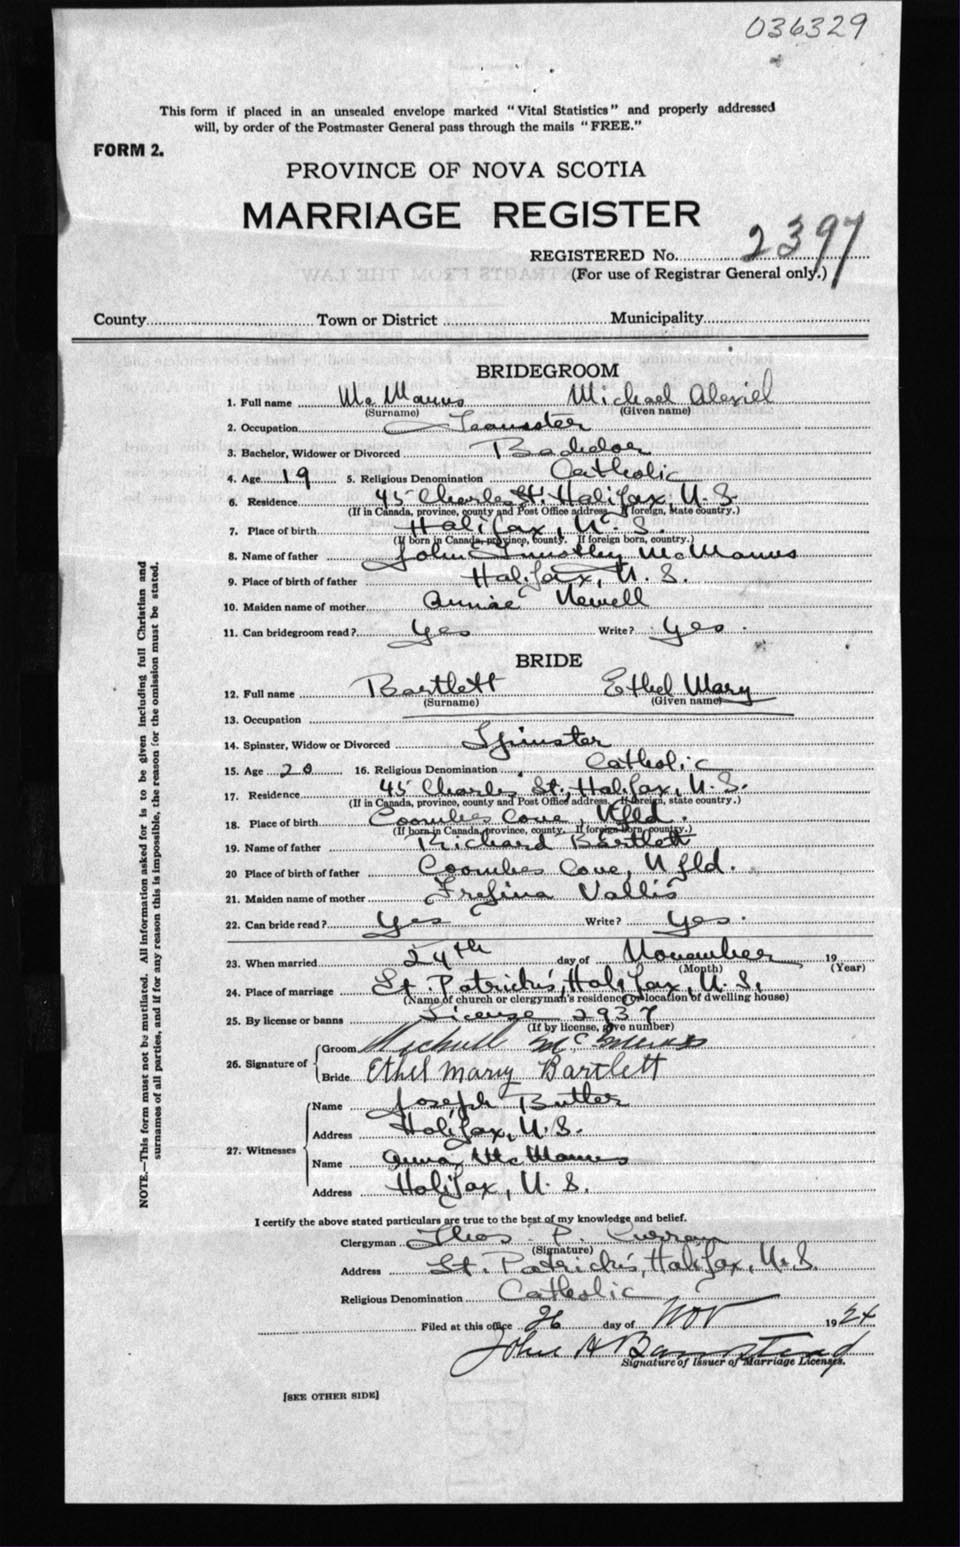 036329
This form if placed in an unsealed envelope marked "Vital Statistics" and properly addressed
will, by order of the Postmaster General pass through the mails "FREE."
FORM 2.
PROVINCE OF NOVA SCOTIA
MARRIAGE REGISTER
REGISTERED No. 2397
(For use of Registrar General only.)
County Town or District Municipality
BRIDEGROOM
1. Full name McManus Michael
(Surname) (Given name)
2. Occupation Teamster
3. Bachelor, Widower or Divorced Bachelor
4. Age 19 5. Religious Denomination Catholic
6. Residence 45 Charles St. Halifax, N.S.
(If in Canada, province, county and Post Office address. If foreign, state country.)
7. Place of birth Halifax, N.S.
(If born in Canada, province, county. If foreign born, country.)
8. Name of father John Timothy McManus
9. Place of birth of father Halifax, N.S.
10. Maiden name of mother Annie Newell
11. Can bridegroom read? Yes Write? Yes.
BRIDE
12. Full name Bartlett Ethel Mary
(Surname) (Given name)
13. Occupation
14. Spinster, Widow or Divorced Spinster
15. Age 20 16. Religious Denomination Catholic
17. Residence 45 Charles St. Halifax, N.S.
(If in Canada, province, county and Post Office address. If foreign, state country.)
18. Place of birth Coombes Cove, Nfld.
(If born in Canada, province, county. If foreign born, country.)
19. Name of father Richard Bartlett
20 Place of birth of father Coombes Cove, Nfld.
21. Maiden name of mother Vallis
22. Can bride read? Yes Write? Yes.
23. When married 24th day of November 19
(Month) (Year)
24. Place of marriage St. Patrick's, Halifax, N.S.
(Name of church or clergyman's residence or location of dwelling house)
25. By license or banns License 2937
(If by license, give number)
26. Signature of Groom Michael McManus
Bride Ethel Mary Bartlett
27. Witnesses Name Joseph Butler
Address Halifax, N.S.
Name Anna McManus
Address Halifax, N.S.
I certify the above stated particulars are true to the best of my knowledge and belief.
Clergyman Thos. P. Curran
(Signature)
Address St. Patrick's, Halifax, N.S.
Religious Denomination Catholic
Filed at this office 26 day of Nov 1924
John H Barnstead
Signature of Issuer of Marriage Licenses.
[SEE OTHER SIDE]
NOTE.—This form must not be mutilated. All information asked for is to be given including full Christian and
surnames of all parties, and if for any reason this is impossible, the reason for the omission must be stated.